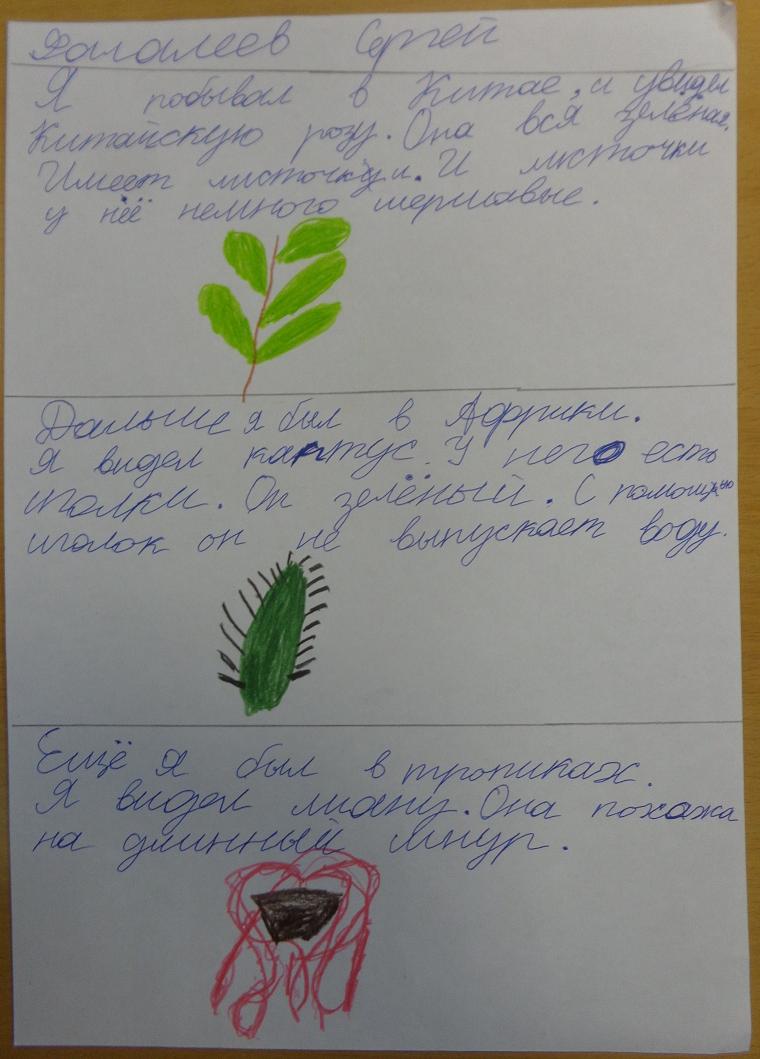 Фагалеев Сергей
Я побывал в Китае, и увидел
Китайскую розу. Она вся зелёная.
Имеет листочки. И листочки
у неё немного шершавые.
Дальше я был в Африки.
Я видел кактус. У него есть
иголки. Он зелёный. С помощью
иголок он не выпускает воду.
Ещё я был в тропиках.
Я видел лиану. Она похожа
на длинный шнур.